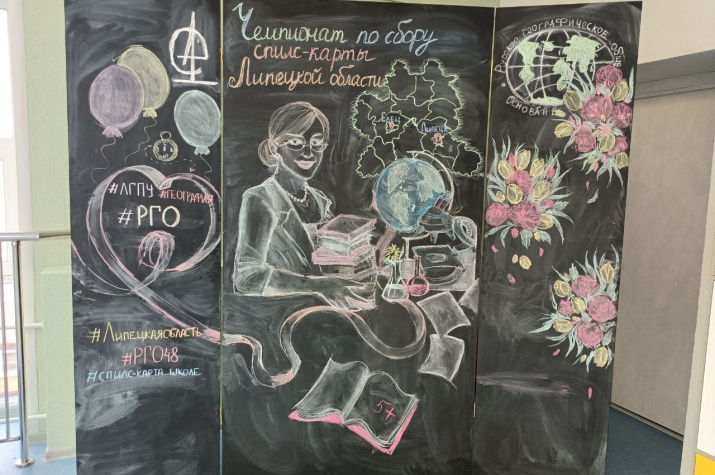 Чемпионат по сбору
спилс-карты
Липецкой области
Елец
Липецк
#ЛГПУ #география
#РГО
#Липецкаяобласть
#РГО48
#спилс-карта школе
5+
Русское географическое
Основан в